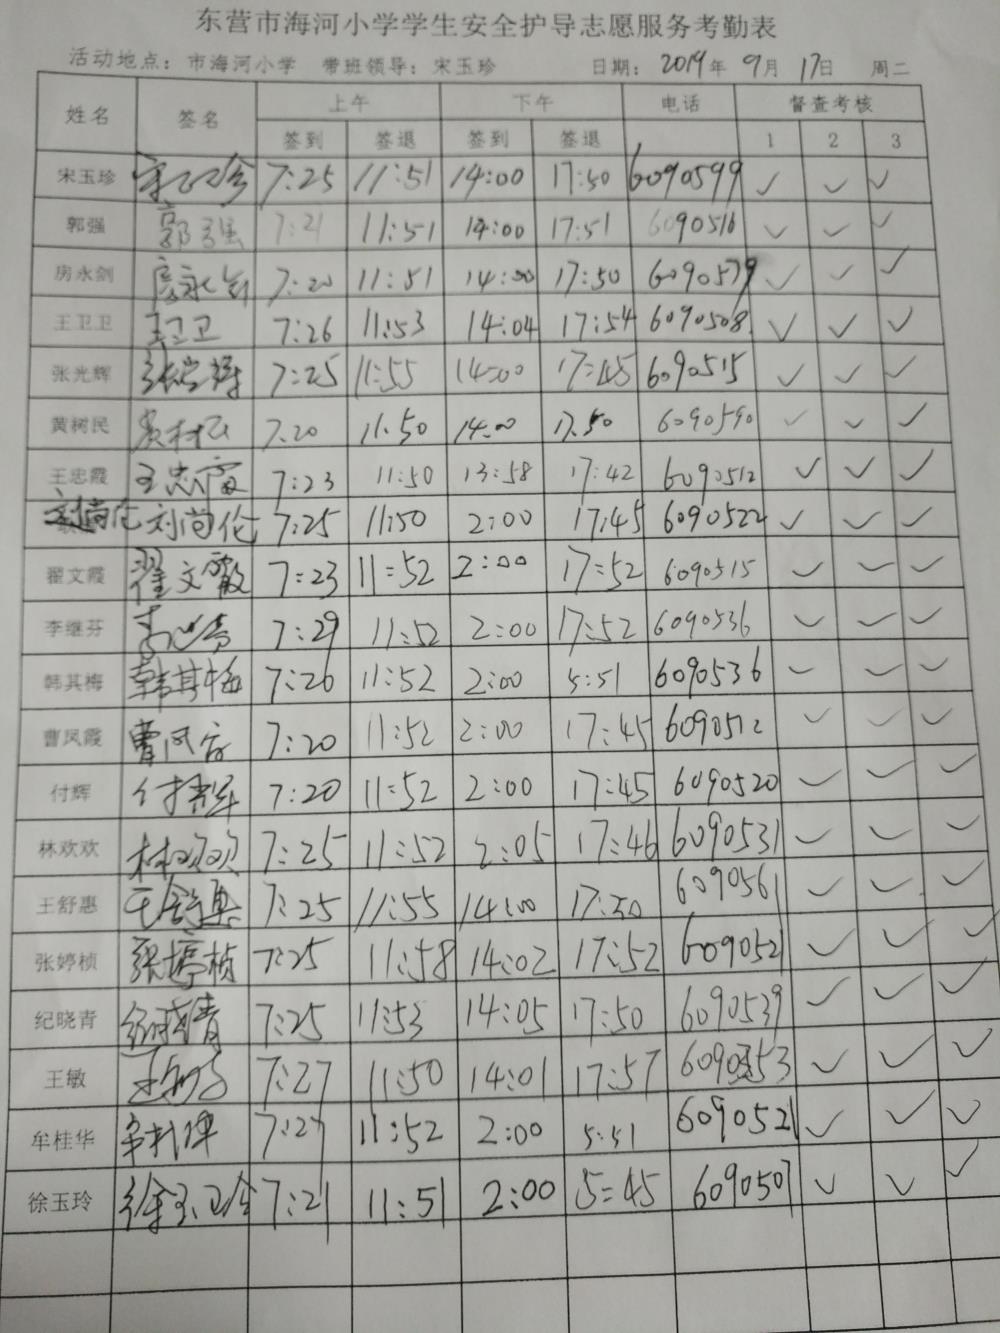 东营市海河小学学生安全护导志愿服务考勤表
活动地点：市海河小学 带班领导：宋玉珍 日期：2019年9月17日 周二
姓名 签名 上午 下午 电话 督查考核
签到 签退 签到 签退 1 2 3
宋玉珍 宋玉珍 7:25 11:51 14:00 17:50 6090599 ✓ ✓ ✓
郭强 郭强 7:21 11:51 14:00 17:51 6090516 ✓ ✓ ✓
房永剑 房永剑 7:20 11:51 14:00 17:50 6090579 ✓ ✓ ✓
王卫卫 王卫卫 7:26 11:53 14:04 17:54 6090508 ✓ ✓ ✓
张光辉 张光辉 7:25 11:55 14:00 17:45 6090515 ✓ ✓ ✓
黄树民 黄树民 7.20 11.50 14:00 17.50 6090590 ✓ ✓ ✓
王忠霞 王忠霞 7:23 11:50 13:58 17:42 6090512 ✓ ✓ ✓
刘尚伦 刘尚伦 7:25 11:50 2:00 17:45 6090522 ✓ ✓ ✓
翟文霞 翟文霞 7:23 11:52 2:00 17:52 6090515 ✓ ✓ ✓
李继芬 李继芬 7:29 11:52 2:00 17:52 6090536 ✓ ✓ ✓
韩其梅 韩其梅 7:26 11:52 2:00 5:51 6090536 ✓ ✓ ✓
曹凤霞 曹凤霞 7:20 11:52 2:00 17:45 6090512 ✓ ✓ ✓
付辉 付辉 7:20 11:52 2:00 17:45 6090520 ✓ ✓ ✓
林欢欢 林欢欢 7:25 11:52 2:05 17:46 6090531 ✓ ✓ ✓
王舒惠 王舒惠 7:25 11:55 14:00 17:50 6090561 ✓ ✓ ✓
张婷桢 张婷桢 7:25 11:58 14:02 17:52 6090521 ✓ ✓ ✓
纪晓青 纪晓青 7:25 11:53 14:05 17:50 6090539 ✓ ✓ ✓
王敏 7:27 11:50 14:01 17:57 6090553 ✓ ✓ ✓
牟桂华 牟桂华 7:27 11:52 2:00 5:51 6090521 ✓ ✓ ✓
徐玉玲 徐玉玲 7:21 11:51 2:00 5:45 6090507 ✓ ✓ ✓